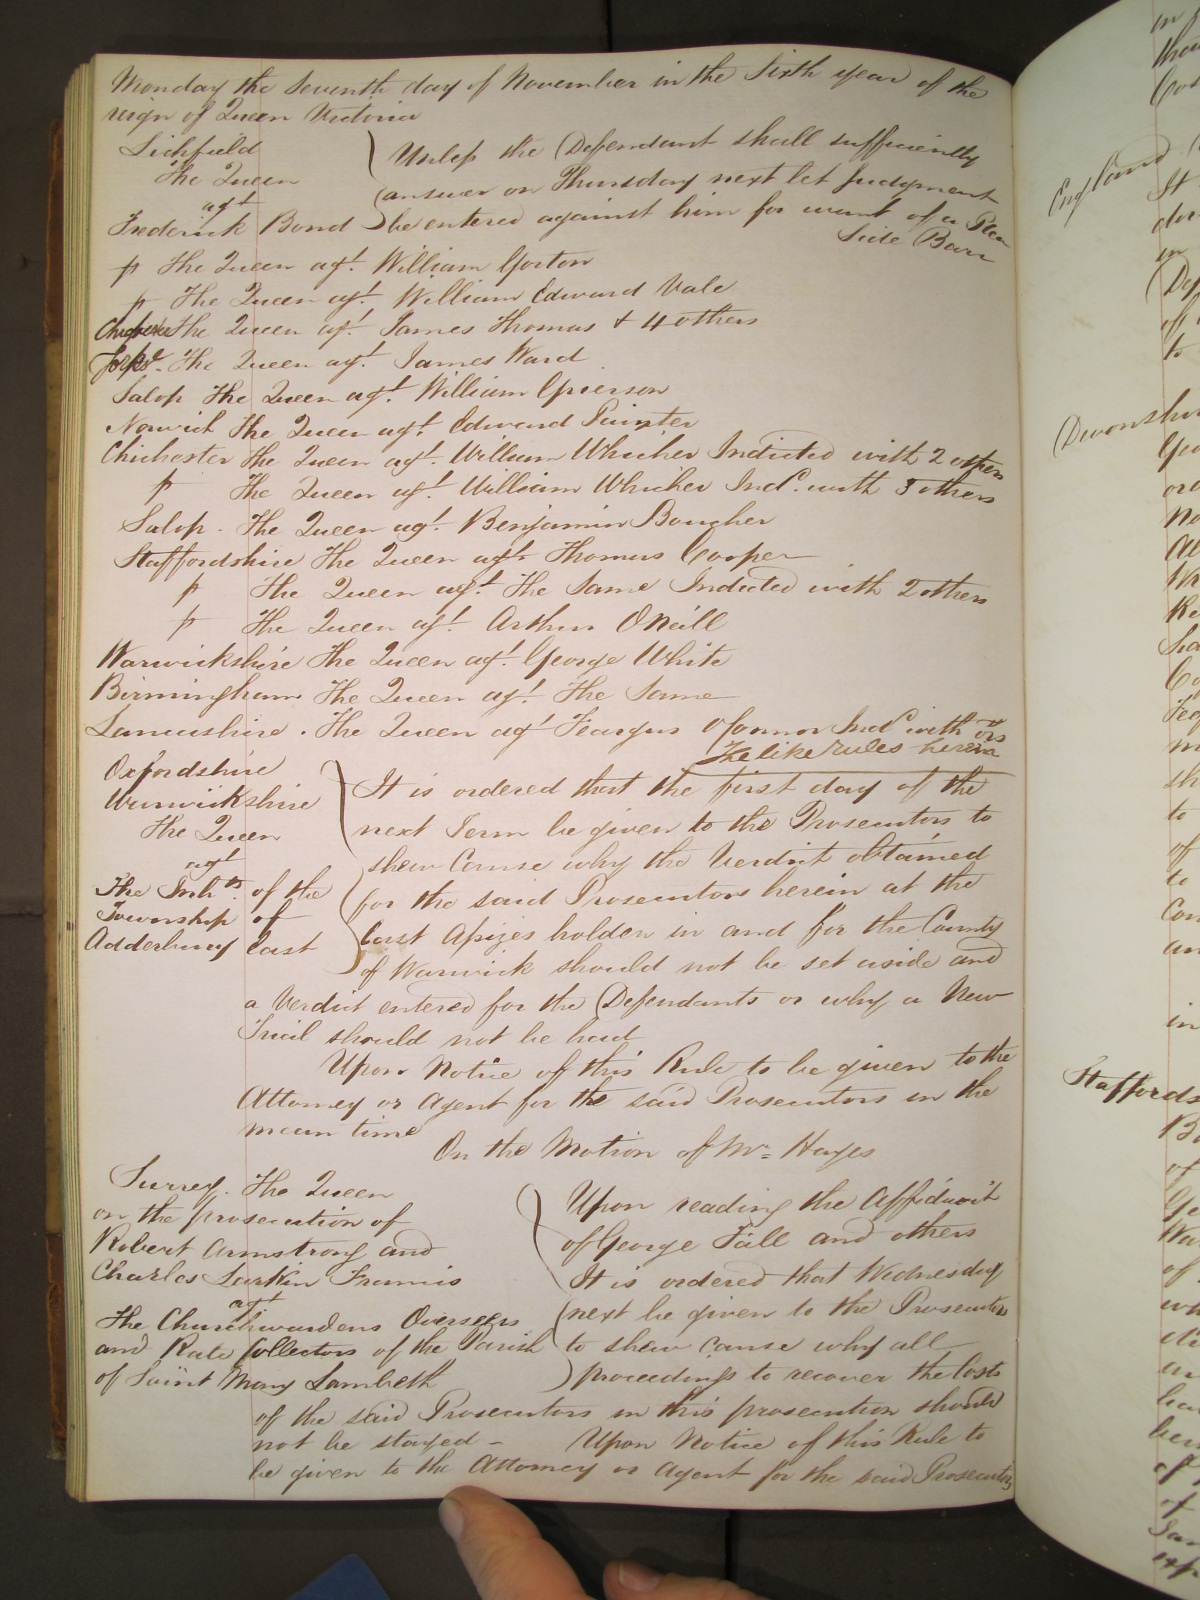 Monday the Seventh day of November in the Sixth year of the
reign of Queen Victoria
Lichfield
The Queen
agt
Frederick Bond
Unless the Defendant shall sufficiently
answer on Thursday next let Judgment
be entered against him for want of a Plea
Side Barr
p The Queen agt. William Gorton
p The Queen agt. William Edward Vale
The Queen agt. James Thomas & 4 others
The Queen agt. James Ward
Salop The Queen agt. William Grierson
Norwich The Queen agt. Edward Painter
Chichester The Queen agt. William Whicher Indicted with 2 others
p The Queen agt. William Whicher Ind. with 3 others
Salop. The Queen agt. Benjamin Boucher
Staffordshire The Queen agt. Thomas Cooper
p The Queen agt. The Same Indicted with 2 others
p The Queen agt. Arthur O'Neill
Warwickshire The Queen agt. George White
Birmingham. The Queen agt. The Same
Lancashire. The Queen agt Feargus O'Connor Ind. with ors
The like rules herein
Oxfordshire
Warwickshire
The Queen
agt
The Inhts. of the
Township of
Adderbury East
It is ordered that the first day of the
next Term be given to the Prosecutors to
shew Cause why the Verdict obtained
for the said Prosecutors herein at the
last Assizes holden in and for the County
of Warwick should not be set aside and
a Verdict entered for the Defendants or why a New
Trial should not be had
Upon Notice of this Rule to be given to the
Attorney or Agent for the said Prosecutors in the
mean time
On the Motion of Mr. Hayes
Surrey. The Queen
on the prosecution of
Robert Armstrong and
Charles Larkin Francis
agt
The Churchwardens Overseers
and Rate Collectors of the Parish
of Saint Mary Lambeth
Upon reading the Affidavit
of George Fall and others
It is ordered that Wednesday
next be given to the Prosecutors
to shew cause why all
proceedings to recover the Costs
of the said Prosecutors in this prosecution should
not be stayed - Upon Notice of this Rule to
be given to the Attorney or Agent for the said Prosecutors
England
Devonshire
Staffords